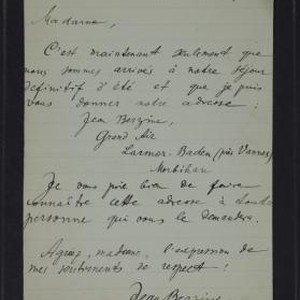 Madame,
C'est maintenant seulement que
nous sommes arrivés à notre séjour
définitif d'été et que je puis
vous donner notre adresse :
Jean Bergine,
Grand Air
Larmor-Baden (près Vannes)
Morbihan
Je vous prie bien de faire
connaître cette adresse à toute
personne qui vous le demandera.
Agréez, madame, l'expression de
mes sentiments de respect !
Jean Bergine